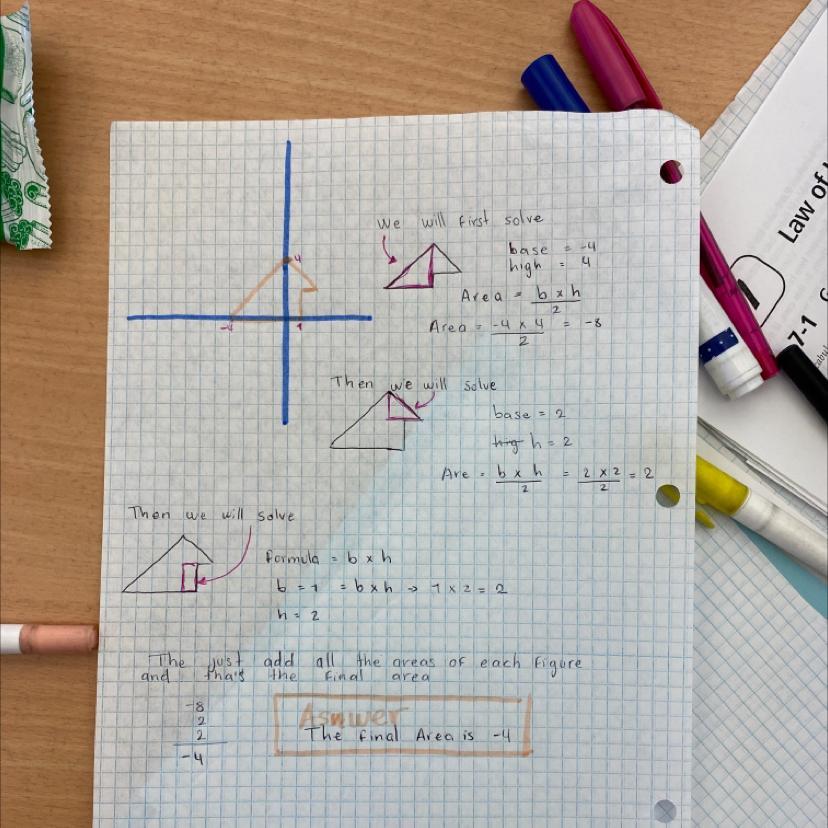 4
-4
1
We will first solve
base = -4
high = 4
Area = b x h
2
Area = -4 x 4 = -8
2
Then we will solve
base = 2
h = 2
Are = b x h = 2 x 2 = 2
2 2
Then we will solve
Formula = b x h
b = 1 = b x h → 1 x 2 = 2
h = 2
The just add all the areas of each figure
and that's the final area
-8
2
2
-4
Asnwer
The final Area is -4
Law of
7-1